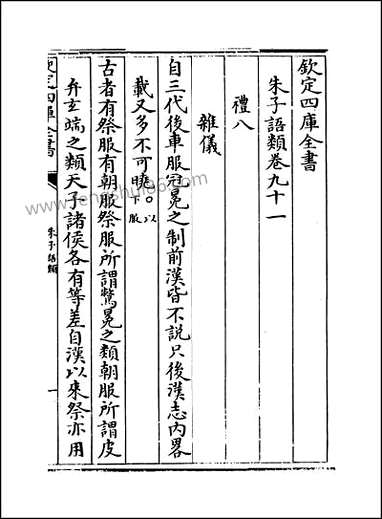 欽定四庫全書
朱子語類卷九十一
禮八
雜儀
自三代後車服冠冕之制前漢皆不說只後漢志內畧
載又多不可曉。以下服
古者有祭服有朝服祭服所謂鷩冕之類朝服所謂皮
弁玄端之類天子諸侯各有等差自漢以來祭亦用
欽定四庫全書
朱子語類
一